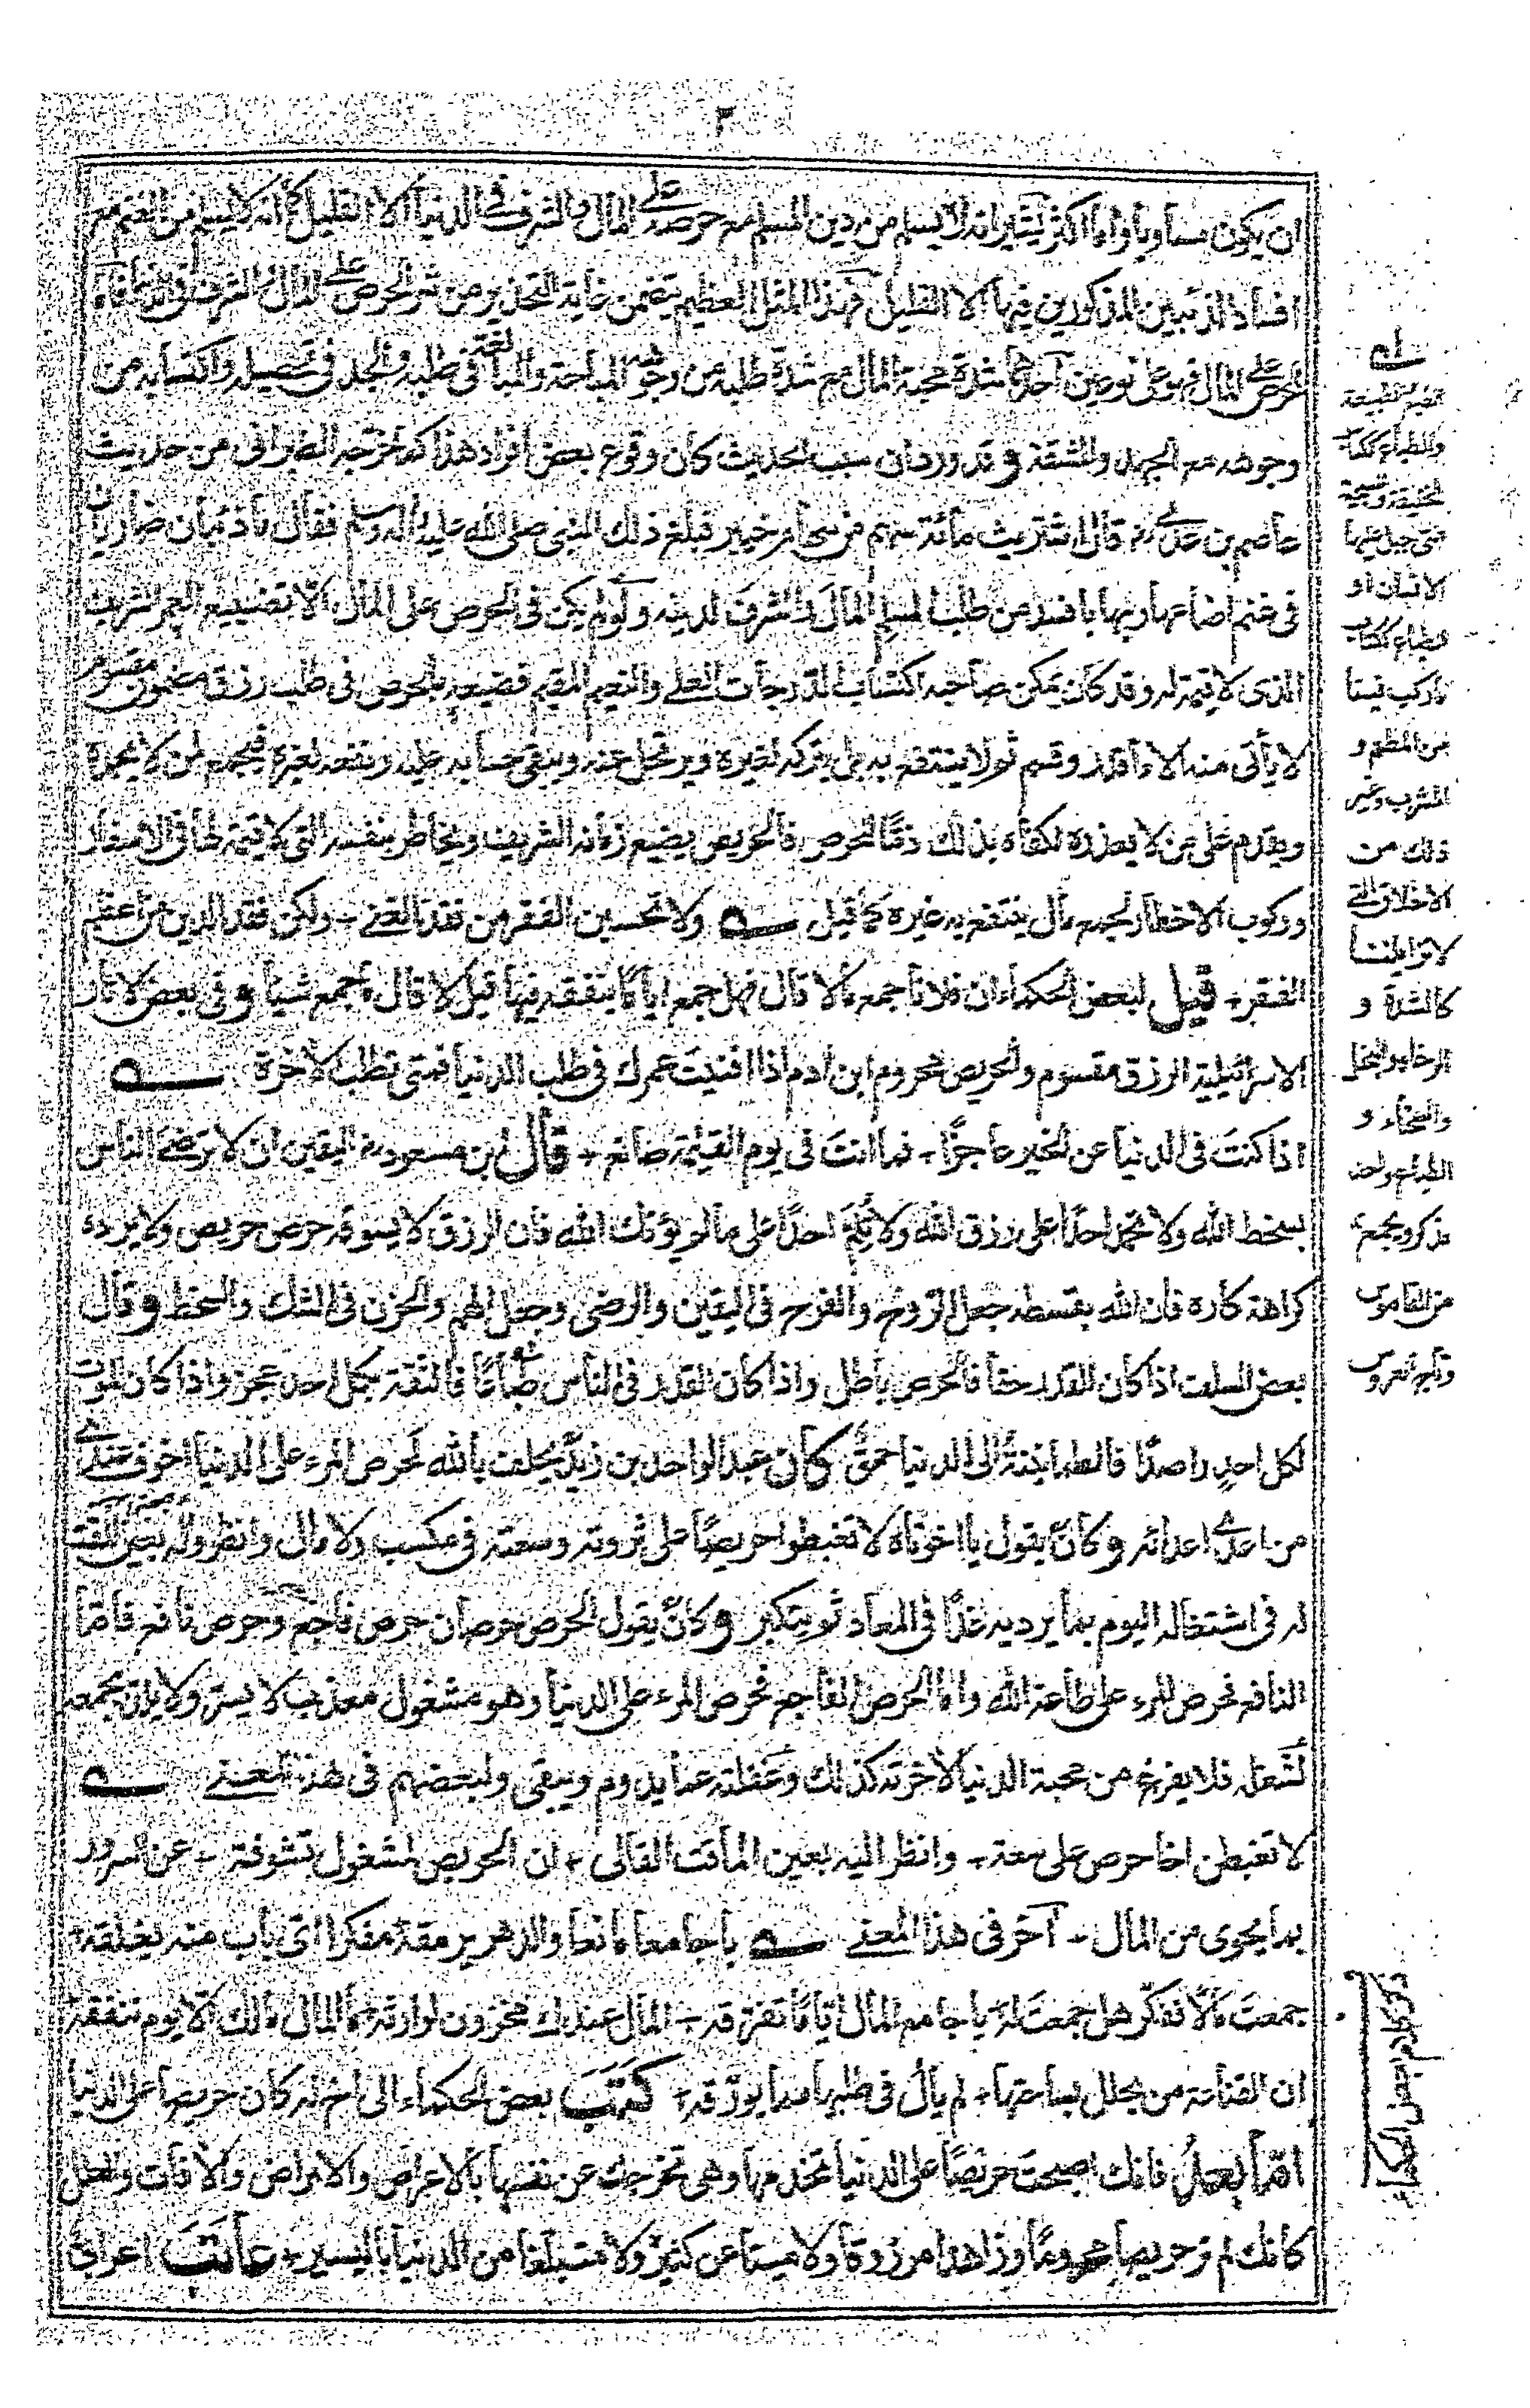 ٣
ان يكون مساويا واما اكثر يشير انه لا يسلم من دين المسلم مع حرصه على المال والشرف فى الدنيا الا القليل كما انه لا يسلم من الغنم مع
افساد الذئبين المذكورين فيها الا القليل فهذا المثل العظيم يتضمن غاية التحذير من شر الحرص على المال والشرف فى الدنيا فاما
الحرص على المال فهو على نوعين احدهما شدة محبة المال مع شدة طلبه من وجوهه المباحة والمبالغة فى طلبه والجد فى تحصيله واكتسابه من
وجوهه مع الجهد والمشقة وقد ورد ان سبب الحديث كان وقوع بعض افراد هذا كما اخرجه الطبرانى من حديث
عاصم بن عدى رض قال اشتريت مائة سهم من سهام خيبر فبلغ ذلك النبى صلى الله عليه وآله وسلم فقال ما ذئبان ضاريان
فى غنم اضاعها ربها بافسد من طلب المسلم المال والشرف لدينه ولو لم يكن فى الحرص على المال الا تضييع العمر الشريف
الذى لا قيمة له وقد كان يمكن صاحبه اكتساب الدرجات العلى والنعيم المقيم فضيعه بالحرص فى طلب رزق مضمون مقسوم
لا يأتى منه الا ما قدر وقسم ثم لا ينتفع به بل يتركه لغيره ويرتحل عنه ويبقى حسابه عليه ونفعه لغيره فيجمع لمن لا يحمده
ويقدم على من لا يعذره لكفاه بذلك ذمًا للحرص فالحريص يضيع زمانه الشريف ويخاطر بنفسه التى لا قيمة لها فى الاسفار
وركوب الاخطار لجمع مال ينتفع به غيره كما قيل ؎ ولا تحسبن الفقر من فقد الغنى ۔ ولكن فقد الدين من اعظم
الفقر ۔ قيل لبعض الحكماء ان فلانا جمع مالا قال فهل جمع اياما ينفقه فيها قيل لا قال ما جمع شيأ وفى بعض الاثار
الاسرائيلية الرزق مقسوم والحريص محروم ابن ادم اذا افنيت عمرك فى طلب الدنيا فمتى تطلب الأخرة ؎
اذا كنت فى الدنيا عن الخير عاجزًا ۔ فما انت فى يوم القيمة صانع ۔ قال ابن مسعود رض اليقين ان لا ترضى الناس
بسخط الله ولا تحمد احدًا على رزق الله ولا تلم احدًا على ما لم يؤتك الله فان الرزق لا يسوقه حرص حريص ولا يرده
كراهة كاره فان الله بقسطه جعل الروح والفرح فى اليقين والرضى وجعل الهم والحزن فى الشك والسخط وقال
بعض السلف اذا كان القدر حقا فالحرص باطل واذا كان الغدر فى الناس طباعًا فالثقة بكل احد عجز واذا كان الموت
لكل احدٍ راصدًا فالطمانينة الى الدنيا حمق كان عبد الواحد بن زيد يحلف بالله لحرص المرء على الدنيا اخوف عندى
من اعدى اعدائه وكان يقول يا اخوتاه لا تغبطوا حريصًا على ثروته وسعته فى مكسب ولا مال وانظروا له بعين المقت
له فى اشتغاله اليوم بما يرديه غدًا فى المعاد ثم يتكبر وكان يقول الحرص حرصان حرص فاجع وحرص نافع فاما
النافع فحرص المرء على طاعة الله واما الحرص الفاجع فحرص المرء على الدنيا وهو مشغول معذب لا يسر ولا يلذ بجمعه
لشغله فلا يفرغ من محبة الدنيا لأخرته كذلك وغفلته عما يدوم ويبقى ولبعضهم فى هذا المعنى ؎
لا تغبطن اخا حرص على سعة ۔ وانظر اليه بعين الماقت القالى ۔ ان الحريص لمشغول بشوقته ۔ عن السرور
بما يحوى من المال ۔ آخر فى هذا المعنى ؎ يا جامعا مانعا والدهر يرمقه مفكرا اى باب منه يغلقه
جمعت مالًا ففكر هل جمعت له يا جامع المال اياما تفرقه ۔ المال عندك مخزون لوارثه ما المال مالك الا يوم تنفقه
ان القناعة من يحلل بساحتها ۔ لم يأل فى طلبها مما يورقه ۔ كتب بعض الحكماء الى اخ له كان حريصا على الدنيا
اما بعد فانك اصبحت حريصًا على الدنيا تخدمها وهى تخرجك عن نفسها بالاعراض والامراض والأفات والعلل
كانك لم تر حريصا محرومًا وزاهدا مرزوقا ولا ميتا عن كثير ولا متبلغا من الدنيا باليسير ۔ عاتب اعرابى
والطباع ككتاب
جبل عليها
الانسان او
الطباع ككتاب
ما ركب فينا
من المطعم و
المشرب وغير
ذلك من
الاخلاق التى
لا تزايلنا
كالشدة و
الرخاء والبخل
والسخاء و
من القاموس
وتاج العروس
ذكر كلام بعض الحكماء